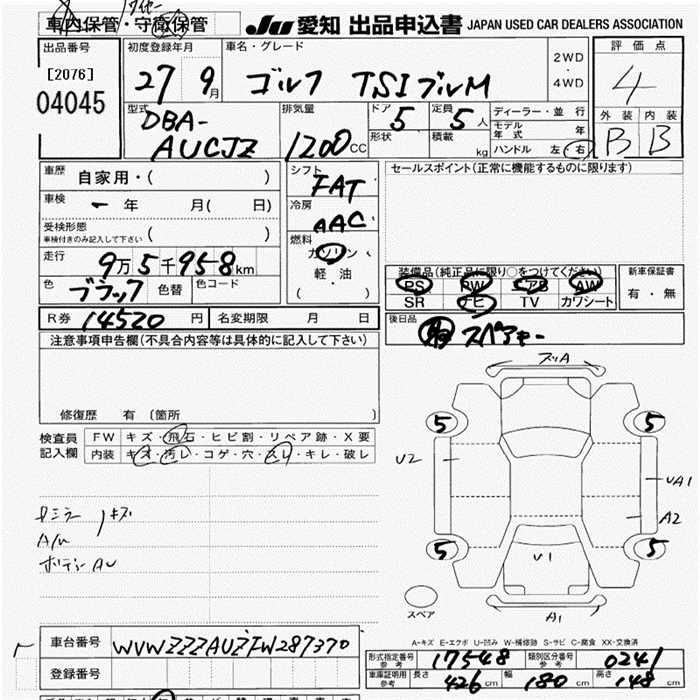 車内保管・守衛保管
JU 愛知 出品申込書 JAPAN USED CAR DEALERS ASSOCIATION
出品番号 初度登録年月 車名・グレード 2WD・4WD 評価点
[2076] 27 9月 ゴルフ TSI 4
04045
型式 排気量 ドア 5 定員 5人 ディーラー・並行 外装 内装
DBA- 形状 積載 kg モデル年式 年 B B
AUCJZ 1200CC ハンドル 左 右
車歴 自家用・( ) シフト FAT セールスポイント(正常に機能するものに限ります)
車検 ー年 月( 日) 冷房 AAC
受検形態 車検付きのみ記入して下さい ( ) 燃料 ガソリン
走行 9万5千958km 軽・油 装備品(純正品に限り○をつけてください) 新車保証書
色 ブラック 色替 色コード ( ) PS PW エアB AW 有・無
SR ナビ TV カワシート
R券 14520円 名変期限 月 日 後日品
注意事項申告欄(不具合内容等は具体的に記入して下さい)
修復歴 有 (箇所 )
検査員記入欄 FW キズ・飛石・ヒビ割・リペア跡・X要
内装 キズ・汚レ・コゲ・穴・スレ・キレ・破レ
A1
5 5
U2 UA1
A2
5 U1 5
スペア A1
A-キズ E-エクボ U-凹み W-補修跡 S-サビ C-腐食 XX-交換済
車台番号 WVWZZZAUZFW287370
形式指定番号 参考 17548 類別区分番号 参考 0241
登録番号 車庫証明用 参考 長さ 426cm 幅 180cm 高さ 148cm